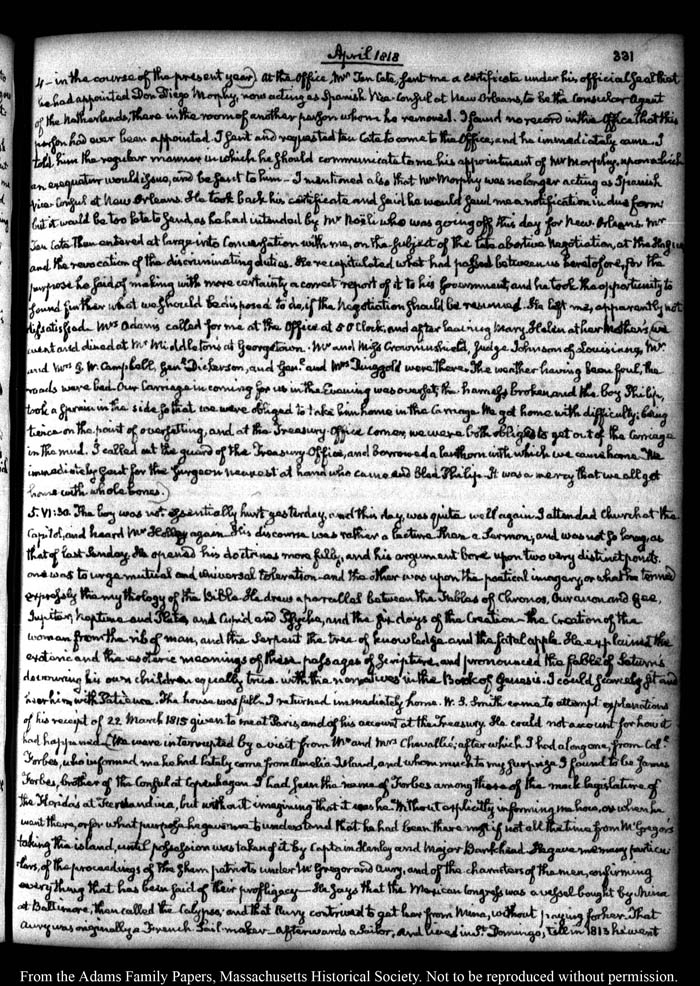 April 1818
331
4 - in the course of the present year) At the Office, Mr Ten Cate, sent me a certificate under his official Seal that
he had appointed Don Diego Morphy, now acting as Spanish Vice-Consul at New Orleans, to be the Consular Agent
of the Netherlands, there in the room of another person whom he removed. I found no record in the Office that this
person had ever been appointed. I sent and requested Ten Cate to come to the Office, and he immediately came. I
told him the regular manner in which he should communicate to me his appointment of Mr Morphy, upon which
an exequatur would issue, and be sent to him - I mentioned also that Mr Morphy was no longer acting as Spanish
Vice-Consul at New Orleans. He took back his certificate and said he would send me a notification in due form
but it would be too late to send, as he had intended by Mr Noëli who was going off this day for New Orleans. Mr
Ten Cate then entered at large into Conversation with me, on the subject of the late abortive Negotiation, at the Hague
and the revocation of the discriminating duties. He recapitulated what had passed between us heretofore, for the
purpose he said of making with more certainty a correct report of it to his Government, and he took the opportunity to
sound further what we should be disposed to do, if the Negotiation should be resumed. He left me, apparently not
dissatisfied. Mrs Adams called for me at the Office at 5 O'Clock, and after leaving Mary Helen at her Mothers, we
went and dined at Mr Middleton's at Georgetown. Mr and Miss Crowninshield, Judge Johnson of Louisiana, Mr
and Mrs G. W. Campbell, Genl Dickerson, and Genl and Mrs Ringgold were there. The weather having been foul, the
roads were bad. Our Carriage in coming for us in the Evening was overset, the harness broken and the boy Philip,
took a sprain in the side, so that we were obliged to take him home in the Carriage. We got home with difficulty; being
twice on the point of oversetting, and at the Treasury Office Corner, we were both obliged to get out of the Carriage
in the mud. I called out the guard of the Treasury Office, and borrowed a lanthorn with which we came home. We
immediately sent for the Surgeon nearest at hand who came and bled Philip. It was a mercy that we all got
home with whole bones.)
5. VI:30. The boy was not essentially hurt yesterday, and this day, was quite well again. I attended Church at the
Capitol, and heard Mr Holley again. His discourse was rather a lecture than a Sermon, and was not so long as
that of last Sunday. He opened his doctrines more fully, and his argument bore upon two very distinct points.
one was to urge mutual and universal toleration - and the other was upon the poetical imagery, or what he termed
expressly the mythology of the Bible. He drew a parallel between the Fables of Chronos, Ouranon and Gee,
Jupiter, Neptune and Pluto, and Cupid and Psyche, and the six days of the Creation - the Creation of the
woman from the rib of man, and the Serpent the tree of knowledge and the fatal apple. He explained the
exoteric and the esoteric meanings of these passages of Scripture, and pronounced the fable of Saturn's
devouring his own children equally true with the narratives in the Book of Genesis. I could scarcely sit and
hear him with Patience. The house was full. I returned immediately home. W. S. Smith came to attempt explanations
of his receipt of 22 March 1815 given to me at Paris, and of his account at the Treasury. He could not account for how it
had happened. (We were interrupted by a visit from Mr and Mrs Chevallié; after which I had a long one, from Col.
Forbes, who informed me he had lately come from Amelia Island, and whom much to my surprize I found to be James
Forbes, brother of the Consul at Copenhagen. I had seen the name of Forbes among those of the mock legislature of
the Floridas at Fernandina, but without imagining that it was he. Without explicitly informing me how, or when he
went there, or for what purpose he gave me to understand that he had been there most if not all the time from McGregor's
taking the island, until possession was taken of it by Captain Henley and Major Bankhead. He gave me many particu-
lars, of the proceedings of the sham patriots under McGregor and Aury, and of the characters of the men, confirming
every thing that has been said of their profligacy - He says that the Mexican Congress was a vessel bought by Mina
at Baltimore, then called the Calypso, and that Aury contrived to get her from Mina, without paying for her. That
Aury was originally a French Sail-maker - afterwards a sailor, and lived in St. Domingo, till in 1813 he went
From the Adams Family Papers, Massachusetts Historical Society. Not to be reproduced without permission.